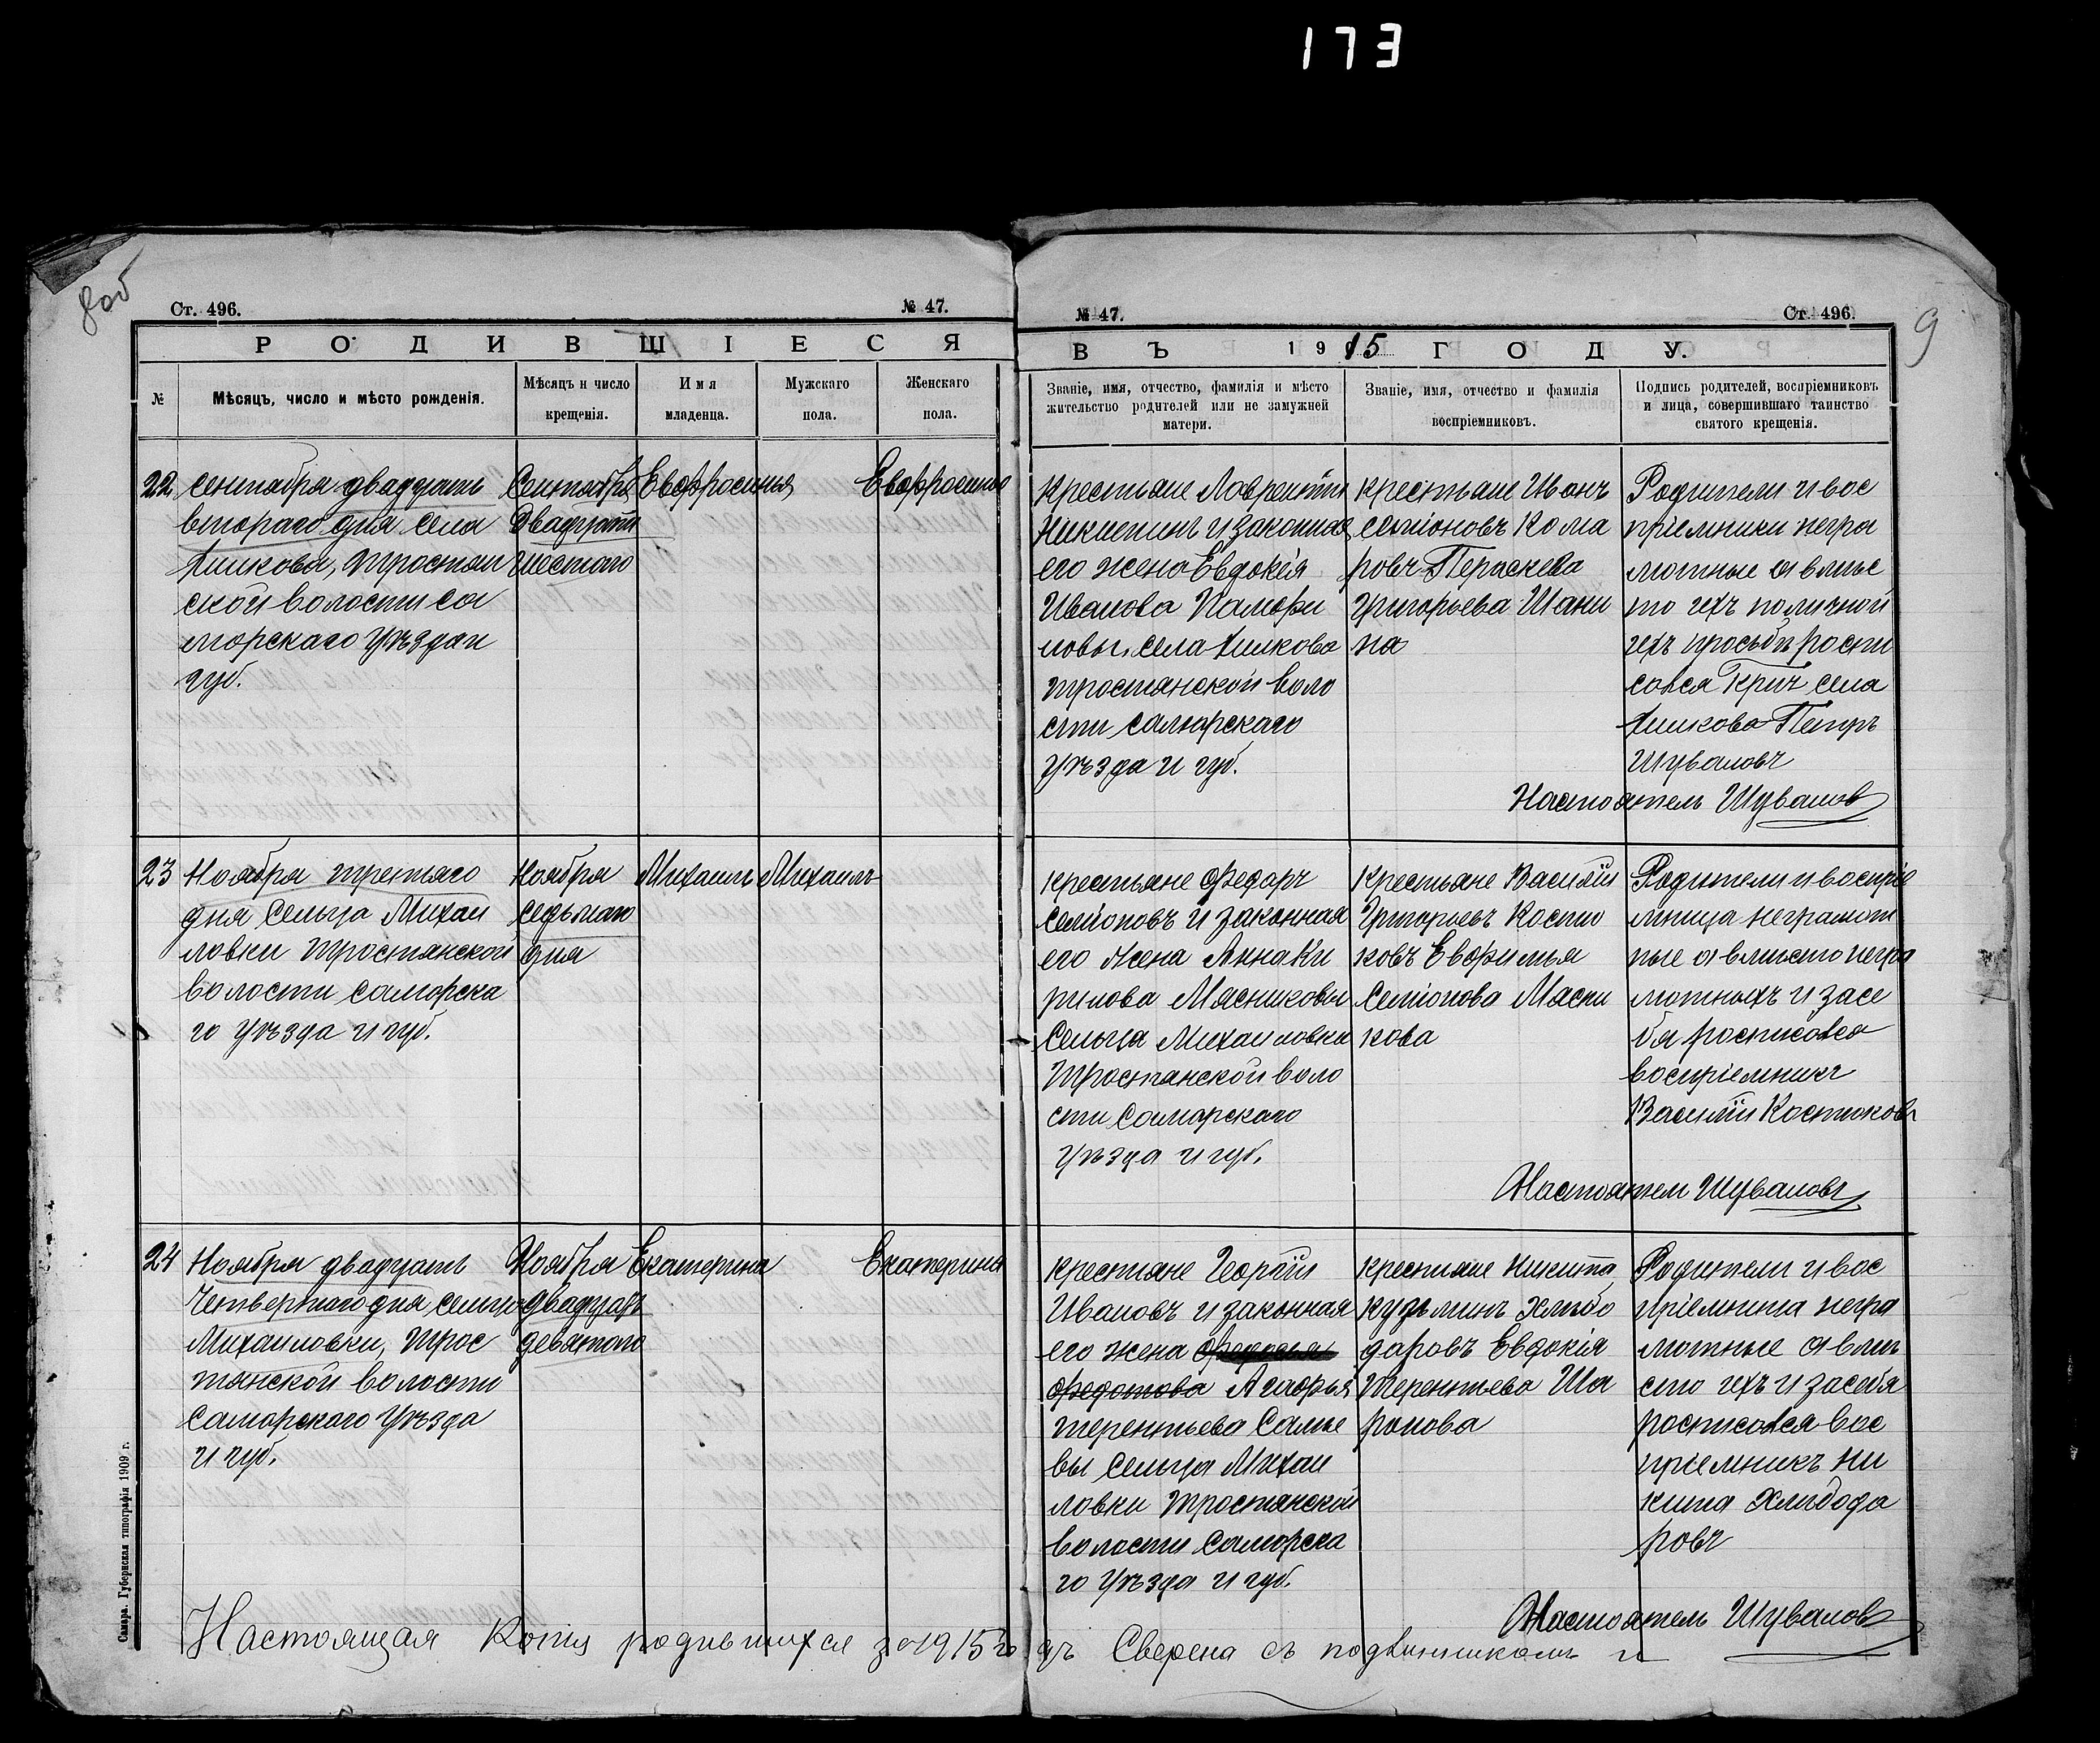 173
8 об
Ст. 496.
№ 47.
РОДИВШІЕСЯ
№
Мѣсяцъ, число и мѣсто рожденія.
Мѣсяцъ и число
крещенія.
Имя
младенца.
Мужскаго
пола.
Женскаго
пола.
22
Сентября двадцать
втораго дня села
Тростян
ской волости Са
марскаго Уѣзда и
губ.
Сентября
двадцать
шестого
Евфросинья
Евфросинья
23
Ноября третьяго
дня Сельца Михаи
ловки Тростянской
волости Самарска
го Уѣзда и губ.
Ноября
седьмаго
дня
Михаилъ
Михаилъ
24
Ноября двадцать
Четвертаго дня сельца
Михаиловки, Трос
тянской волости
Самарскаго Уѣзда
и губ.
Ноября
двадцать
девятого
Екатерина
Екатерина
Самара. Губернская типографія 1909 г.
№ 47.
Ст. 496.
9
ВЪ 1915 ГОДУ.
Званіе, имя, отчество, фамилія и мѣсто
жительство родителей или не замужней
матери.
Званіе, имя, отчество и фамилія
воспріемниковъ.
Подпись родителей, воспріемниковъ
и лица, совершившаго таинство
святого крещенія.
Крестьяне Лаврентій
Никитинъ и законная
его жена Евдокія
Иванова
села
Тростянской воло
сти Самарскаго
Уѣзда и губ.
Крестьяне Иванъ
Семіоновъ Кома
ровъ Параскева
Григорьева Шани
на
Родители и вос
пріемники негра
мотные а вмѣс
то ихъ по личной
ихъ просьбѣ роспи
сался Кр-нъ села
Петръ
Шуваловъ
Настоятель Шуваловъ
Крестьяне Федаръ
Семіоновъ и законная
его жена Анна Ки
рилова Масниковы
Сельца Михаиловки
Тростянской воло
сти Самарскаго
Уѣзда и губ.
Крестьяне Василій
Григорьевъ Костю
ковъ Евфимья
Семіонова Масни
кова
Родители и воспріе
мница неграмот
ные а вмѣсто негра
мотныхъ и за се
бя росписался
воспріемникъ
Василій Костюковъ
Настоятель Шуваловъ
Крестьяне Георгій
Ивановъ и законная
его жена
федотова Агафья
Терентьева
вы Сельца Михаи
ловки Тростянской
волости Самарска
го Уѣзда и губ.
Крестьяне Никита
Кузьминъ Хлѣбо
даровъ Евдокія
Терентьева Ша
рапова
Родители и вос
пріемница негра
мотные а вмѣ
сто ихъ и за себя
росписался вос
пріемникъ Ни
кита Хлѣбода
ровъ
Настоятель Шуваловъ
Настоящая Копія родившихся за 1915 годъ Сверена съ подлинникомъ и